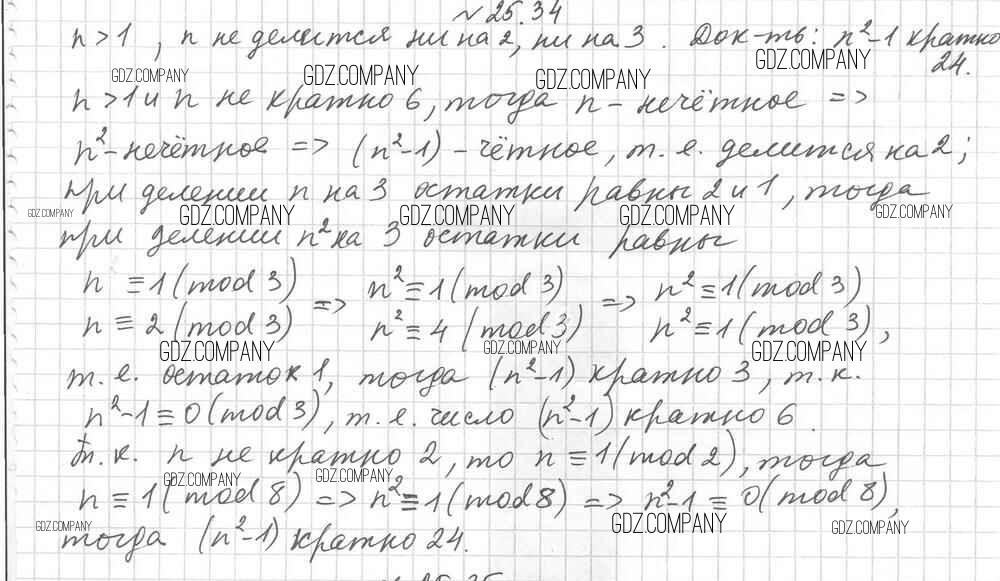 № 25.34
n > 1 , n не делится ни на 2, ни на 3 . Док-ть: n²-1 кратно
24.
GDZ.COMPANY GDZ.COMPANY GDZ.COMPANY GDZ.COMPANY
n > 1 и n не кратно 6, тогда n - нечётное =>
n² - нечётное => (n²-1) - чётное, т. е. делится на 2;
при делении n на 3 остатки равны 2 и 1, тогда
GDZ.COMPANY GDZ.COMPANY GDZ.COMPANY GDZ.COMPANY GDZ.COMPANY
при делении n² на 3 остатки равны
n ≡ 1 (mod 3) => n² ≡ 1 (mod 3) => n² ≡ 1 (mod 3)
n ≡ 2 (mod 3) n² ≡ 4 (mod 3) n² ≡ 1 (mod 3),
GDZ.COMPANY GDZ.COMPANY GDZ.COMPANY
т. е. остаток 1, тогда (n²-1) кратно 3, т. к.
n²-1 ≡ 0 (mod 3), т. е. число (n²-1) кратно 6 .
Т. к. n не кратно 2, то n ≡ 1 (mod 2), тогда
GDZ.COMPANY GDZ.COMPANY
n ≡ 1 (mod 8) => n² ≡ 1 (mod 8) => n²-1 ≡ 0 (mod 8),
GDZ.COMPANY GDZ.COMPANY GDZ.COMPANY
тогда (n²-1) кратно 24.